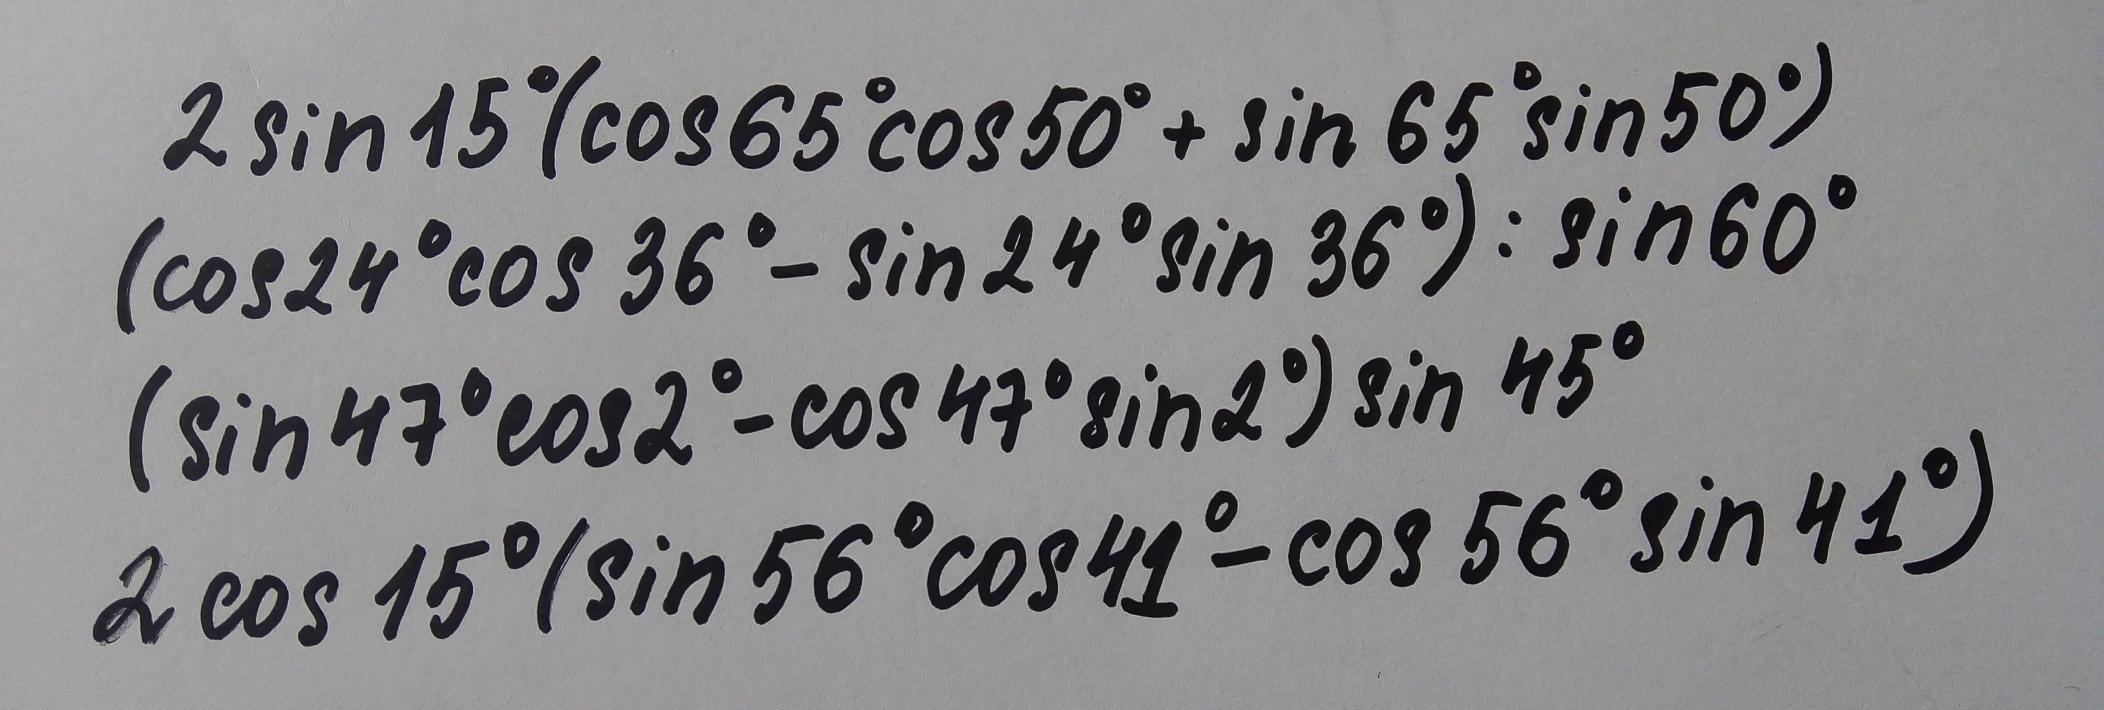 2 sin 15°(cos 65° cos 50° + sin 65° sin 50°)
(cos 24° cos 36° - sin 24° sin 36°) : sin 60°
(sin 47° cos 2° - cos 47° sin 2°) sin 45°
2 cos 15° (sin 56° cos 41° - cos 56° sin 41°)